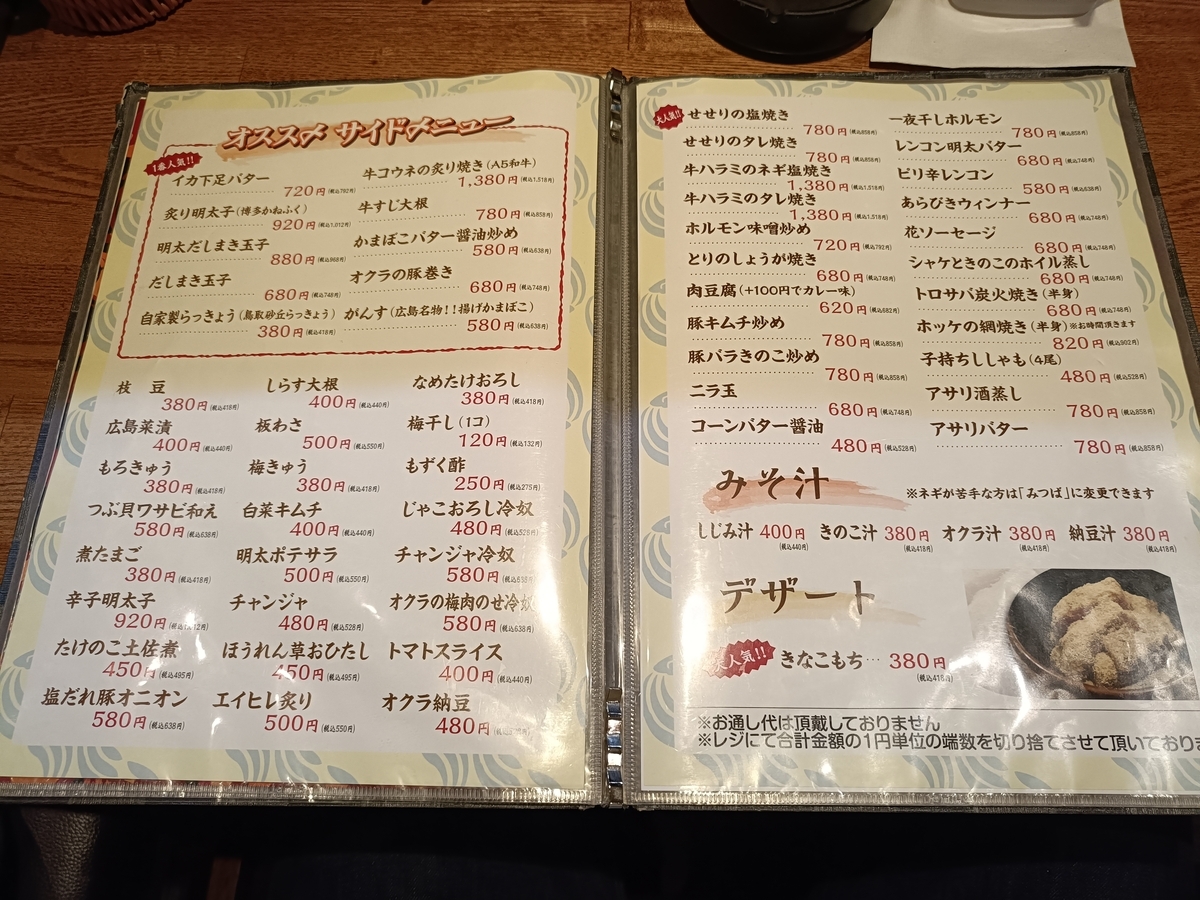 オススメ サイドメニュー
1番人気!!
イカ下足バター
720円(税込792円)
牛コウネの炙り焼き(A5和牛)
1,380円(税込1,518円)
炙り明太子(博多かねふく)
920円(税込1,012円)
牛すじ大根
780円(税込858円)
明太だしまき玉子
880円(税込968円)
かまぼこバター醤油炒め
580円(税込638円)
だしまき玉子
680円(税込748円)
オクラの豚巻き
680円(税込748円)
自家製らっきょう(鳥取砂丘らっきょう)
380円(税込418円)
がんす(広島名物!!揚げかまぼこ)
580円(税込638円)
枝 豆
380円(税込418円)
しらす大根
400円(税込440円)
なめたけおろし
380円(税込418円)
広島菜漬
400円(税込440円)
板わさ
500円(税込550円)
梅干し(1コ)
120円(税込132円)
もろきゅう
380円(税込418円)
梅きゅう
380円(税込418円)
もずく酢
250円(税込275円)
つぶ貝ワサビ和え
580円(税込638円)
白菜キムチ
400円(税込440円)
じゃこおろし冷奴
480円(税込528円)
煮たまご
380円(税込418円)
明太ポテサラ
500円(税込550円)
チャンジャ冷奴
580円(税込638円)
辛子明太子
920円(税込1,012円)
チャンジャ
480円(税込528円)
オクラの梅肉のせ冷奴
580円(税込638円)
たけのこ土佐煮
450円(税込495円)
ほうれん草おひたし
450円(税込495円)
トマトスライス
400円(税込440円)
塩だれ豚オニオン
580円(税込638円)
エイヒレ炙り
500円(税込550円)
オクラ納豆
480円
大人気!!
せせりの塩焼き
780円(税込858円)
せせりのタレ焼き
780円(税込858円)
牛ハラミのネギ塩焼き
1,380円(税込1,518円)
牛ハラミのタレ焼き
1,380円(税込1,518円)
ホルモン味噌炒め
720円(税込792円)
とりのしょうが焼き
680円(税込748円)
肉豆腐(+100円でカレー味)
620円(税込682円)
豚キムチ炒め
780円(税込858円)
豚バラきのこ炒め
780円(税込858円)
ニラ玉
680円(税込748円)
コーンバター醤油
480円(税込528円)
一夜干しホルモン
780円(税込858円)
レンコン明太バター
680円(税込748円)
ピリ辛レンコン
580円(税込638円)
あらびきウィンナー
680円(税込748円)
花ソーセージ
680円(税込748円)
シャケときのこのホイル蒸し
680円(税込748円)
トロサバ炭火焼き(半身)
680円(税込748円)
ホッケの網焼き(半身)※お時間頂きます
820円(税込902円)
子持ちししゃも(4尾)
480円(税込528円)
アサリ酒蒸し
780円(税込858円)
アサリバター
780円(税込858円)
みそ汁
※ネギが苦手な方は「みつば」に変更できます
しじみ汁 400円 きのこ汁 380円 オクラ汁 380円 納豆汁 380円
(税込440円) (税込418円) (税込418円) (税込418円)
デザート
大人気!!
きなこもち… 380円
(税込418円)
※お通し代は頂戴しておりません
※レジにて合計金額の1円単位の端数を切り捨てさせて頂いておりま